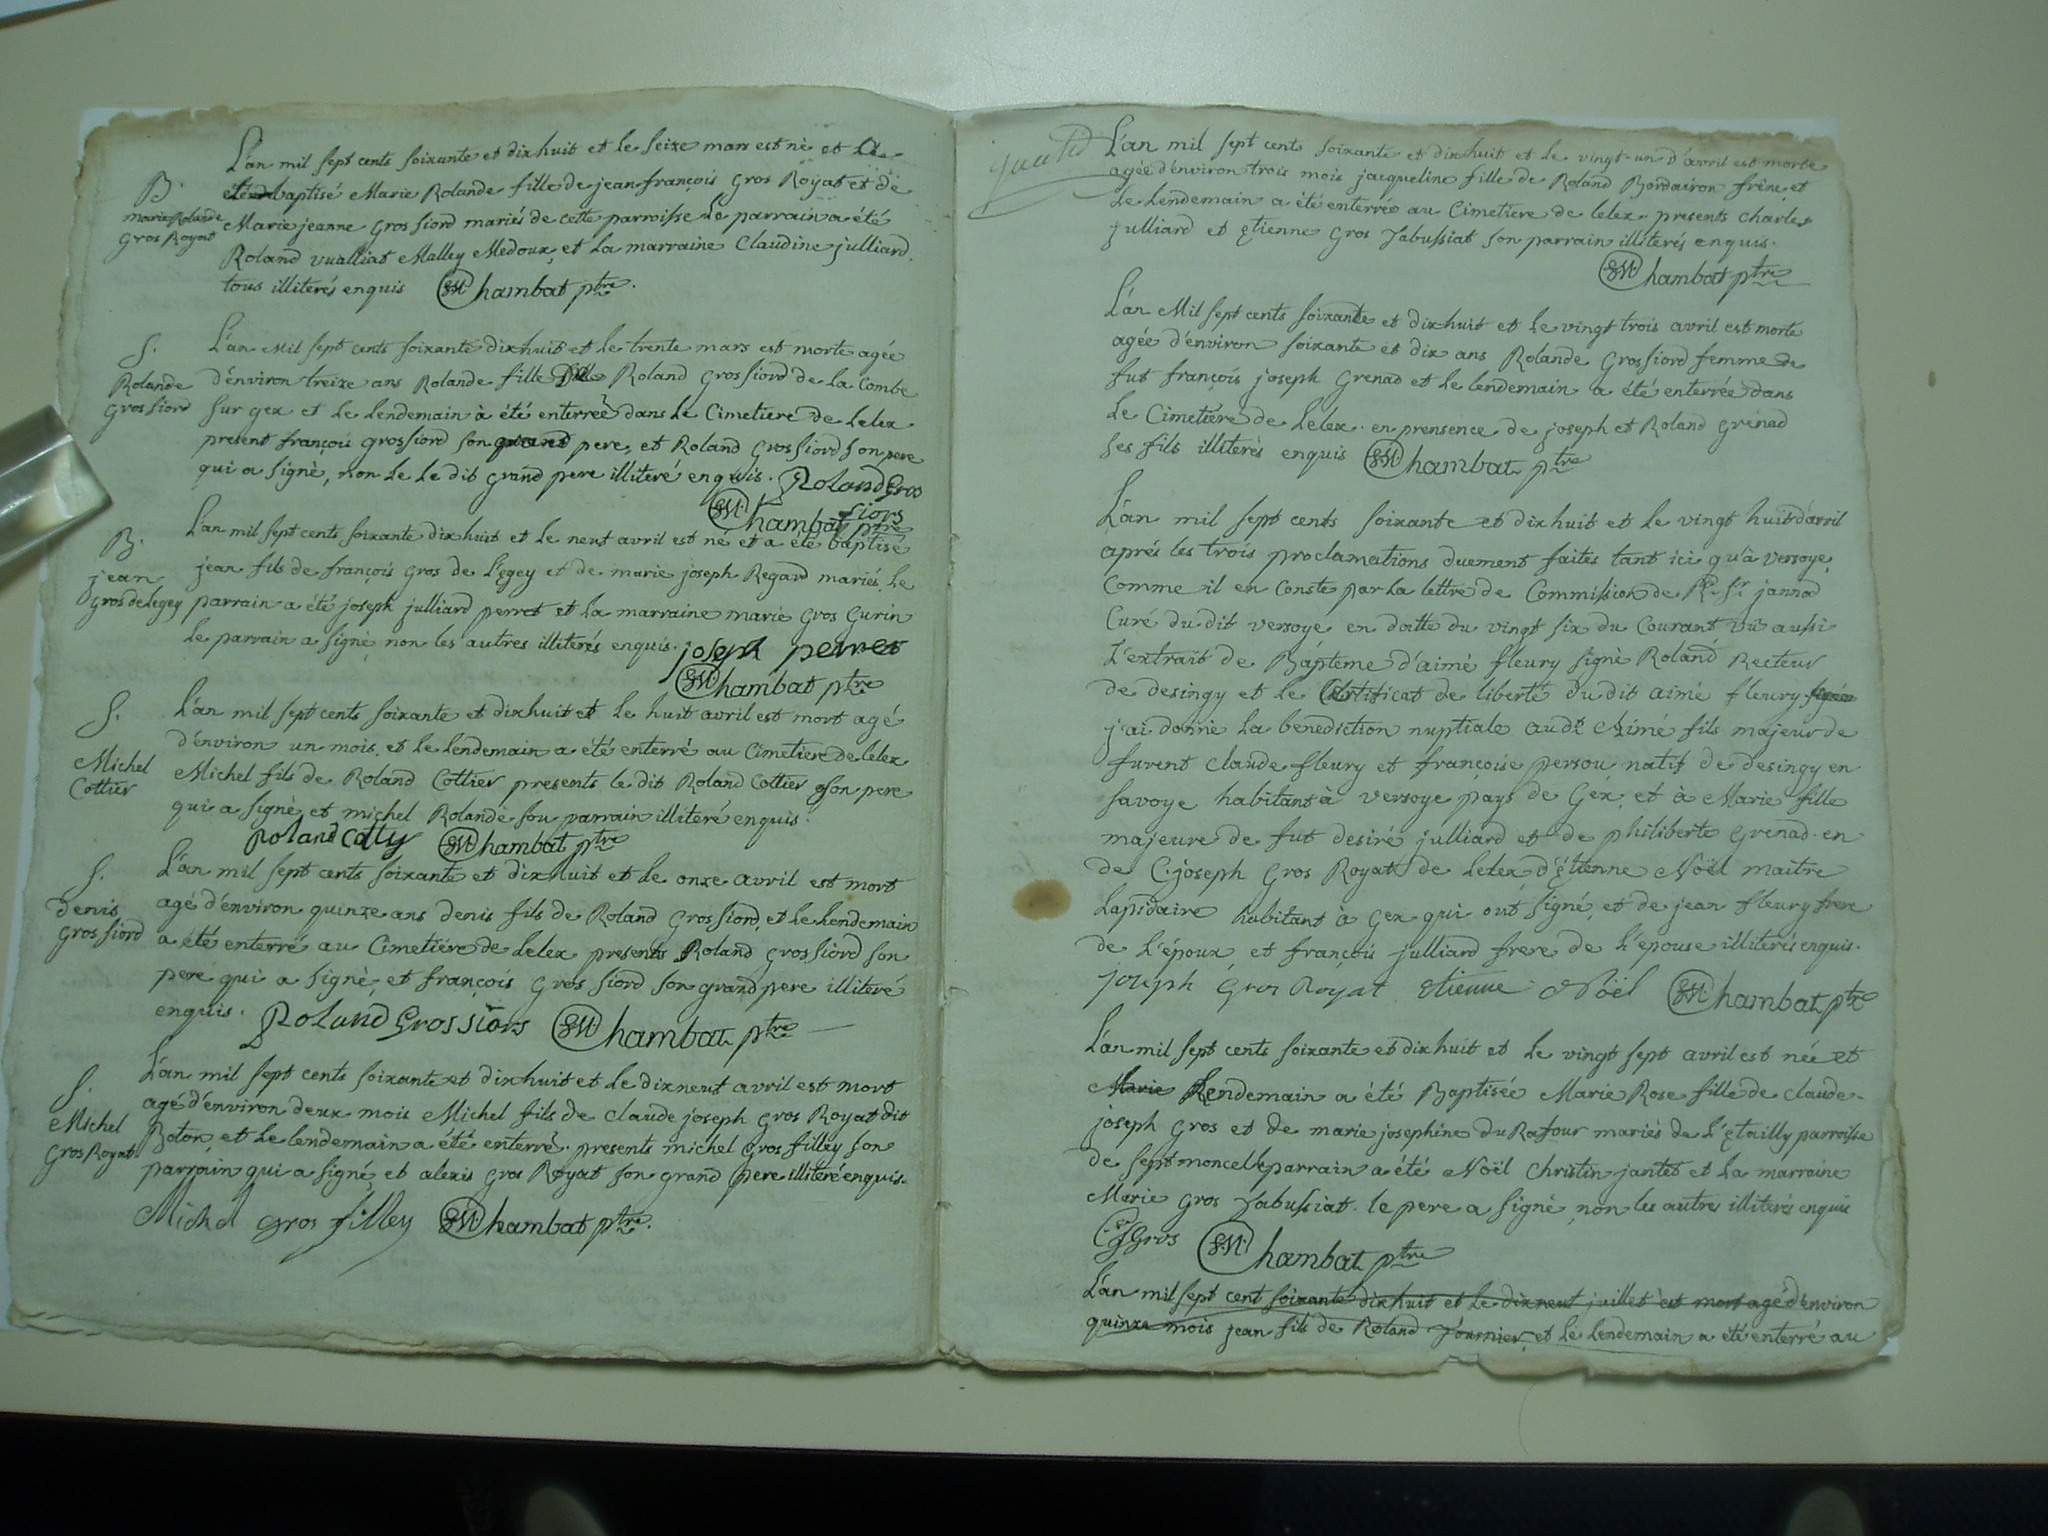 L'an mil sept cents soixante et dixhuit et le seize mars est nè et a
été baptisé Marie Rolande fille de jean françois Gros Royat et de
Marie jeanne Gros siord mariés de cette parroisse Le parrain a été
Roland vualliat Malley Medoux, et La marraine Claudine julliard.
tous illiterés enquis Chambat ptre.
B.
marie Rolande
Gros Royat
L'an Mil sept cents soixante dixhuit et le trente mars est morte agée
d'environ treize ans Rolande fille de Roland Gros siord de La Combe
sur gex et le lendemain à été enterreé dans Le Cimetiere de Lelex
present françois gros siord son grand pere, et Roland Gros siord son pere
qui a signè, non Le Le dit grand pere illiteré enquis. Roland Gros
siors
Chambat ptre
S.
Rolande
Gros siord
L'an mil sept cents soixante dixhuit et le neuf avril est né et a été baptisé
jean fils de françois Gros de L'egey et de marie joseph Regard mariés, Le
parrain a été joseph julliard perret et la marraine marie Gros Gurin
le parrain a signè, non les autres illiterés enquis. joseph perret
Chambat ptre
B.
jean
Gros de legey
L'an mil sept cents soixante et dixhuit et le huit avril est mort agé
d'environ un mois, et le lendemain a été enterré au Cimetiere de lelex
Michel fils de Roland Cottier presents le dit Roland Cottier son pere
qui a signè, et michel Rolande son parrain illiteré enquis.
Roland Coty Chambat ptre
S.
Michel
Cottier
L'an mil sept cents soixante et dixhuit et le onze avril est mort
agé d'environ quinze ans denis fils de Roland Gros siord, et le lendemain
a été enterré au Cimetiere de Lelex presents Roland Gros siord son
pere qui a signè, et françois Gros siord son grand pere illiteré
enquis. Roland Gros siors Chambat ptre
S.
denis
Gros siord
L'an mil sept cents soixante et dixhuit et le dixneuf avril est mort
agé d'environ deux mois Michel fils de Claude joseph Gros Royat dit
Boton, et Le lendemain a été enterré. presents michel Gros filley son
parrain qui a signé, et alexis Gros Royat son grand pere illiteré enquis.
Michel Gros filley Chambat ptre.
S.
Michel
Gros Royat
L'an mil sept cents soixante et dixhuit et le vingt-un d'avril est morte
agée d'environ trois mois jacqueline fille de Roland Bordairon frêne, et
Le Lendemain a été enterrée au Cimetiere de lelex. presents Charles
julliard et Etienne Gros Jabussiat son parrain illiterés enquis.
Chambat ptre
L'an Mil sept cents soixante et dixhuit et le vingt trois avril est morte
agée d'environ soixante et dix ans Rolande Gros siord femme de
fut françois joseph Grenad et le lendemain a été enterrée dans
Le Cimetiére de Lelex. en prensence de joseph et Roland Grenad
ses fils illiterés enquis Chambat ptre
L'an mil sept cents soixante et dixhuit et le vingt huit d'avril
aprés les trois proclamations duement faites tant ici qu'à versoye,
Comme il en Conste par La lettre de Commission de Rd Sr jannod
Curé du dit versoye en datte du vingt six du Courant, vû aussi
L'extrait de Báptême d'aimé fleury signè Roland, Recteur
de desingy et le Certificat de liberté du dit aimé fleury
j'ai donné la benediction nuptiale audt Aimé fils majeur de
furent Claude fleury et françoise persou natif de desingy en
savoye habitant à versoye pays de Gex, et à Marie fille
majeure de fut desiré julliard et de philiberte Grenad. en
de C. joseph Gros Royat de Lelex d'Etienne Noël maitre
Lapidaire habitant à Gex qui ont signé, et de jean fleury frere
de L'époux, et françois julliard frere de L'epouse illiterés enquis.
joseph Gros Royat Etienne Noël Chambat ptre
L'an mil sept cents soixante et dixhuit et Le vingt sept avril est née et
Marie Lendemain a été Baptisée Marie Rose fille de Claude
joseph Gros et de marie josephine du Rafour mariés de L'Etailly parroisse
de septmoncel Le parrain a été Noël Christin jantet et la marraine
Marie Gros Jabussiat. le pere a signé, non les autres illiterés enquis
Gros Chambat ptre
L'an mil sept cent soixante dixhuit et Le dixneuf juillet est mort agé d'environ
quinze mois jean fils de Roland fournier, et le lendemain a été enterré au